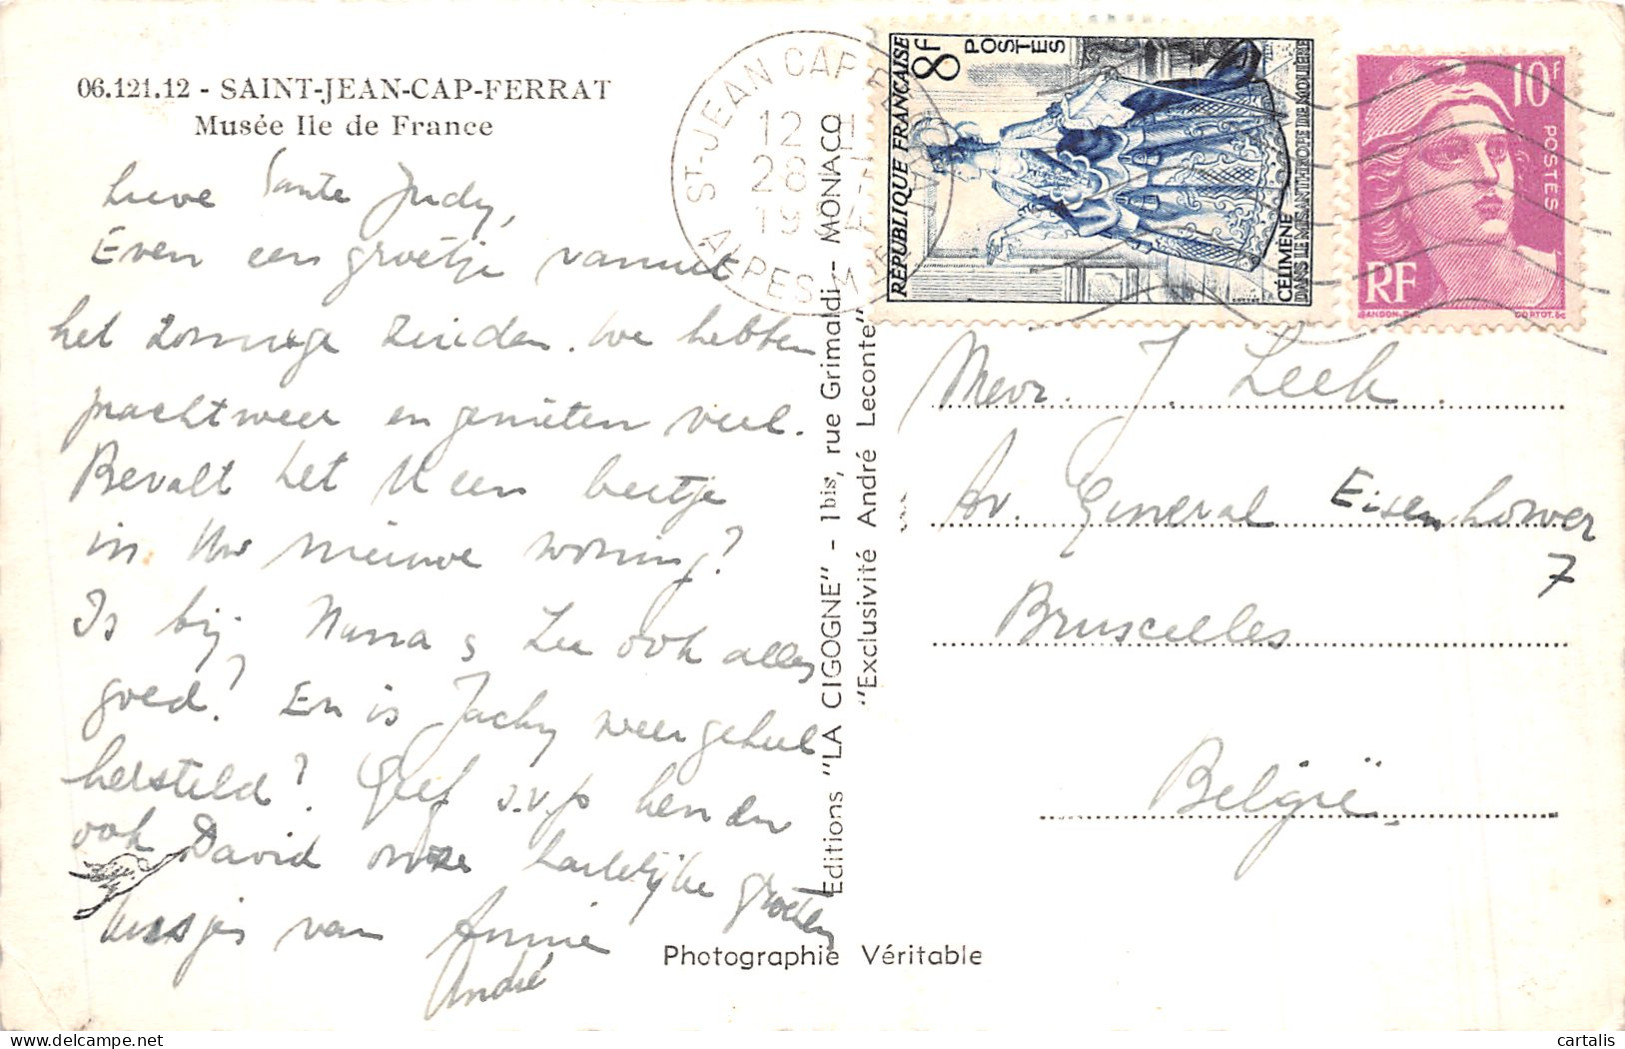 06.121.12 - SAINT-JEAN-CAP-FERRAT
Musée Ile de France
Lieve Tante Judy,
Even een groetje vanuit
het zonnige zuiden. We hebben
prachtweer en genieten veel.
Bevalt het U een beetje
in Uw nieuwe woning?
Is bij Nana & Lee ook alles
goed? En is Jacky weer geheel
hersteld? Geef s.v.p hen en
ook David onze hartelijke groeten
kusjes van Annie
André
Editions "LA CIGOGNE" - 1bis, rue Grimaldi - MONACO
"Exclusivité André Leconte"
Photographie Véritable
ST-JEAN CAP
12
28
19
ALPES-M
RÉPUBLIQUE FRANÇAISE
8F
POSTES
CÉLIMÈNE
DANS LE MISANTHROPE DE MOLIÈRE
10F
POSTES
RF
GANDON
CORTOT.SC
Mevr. J. Leek
Av. General Eisenhower
7
Bruxelles
België
cartalis